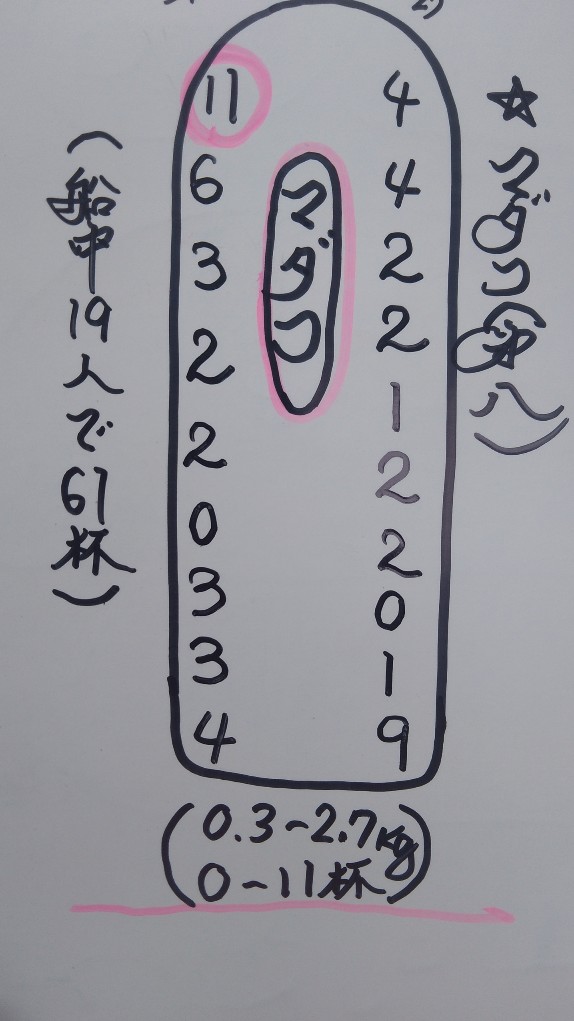 ☆マダコ(第八)
11 4
6 4
3 2
2 2
2 1
0 2
3 2
3 0
4 1
9
マダコ
(船中19人で61杯)
(0.3~2.7kg
0~11杯)